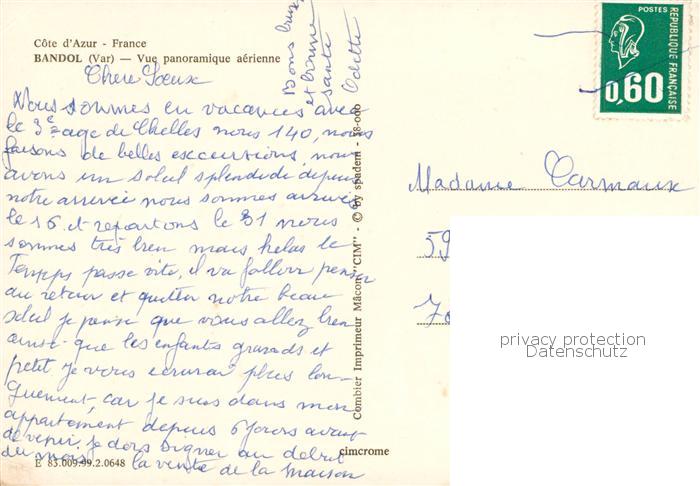 Côte d'Azur - France
BANDOL (Var) — Vue panoramique aérienne
Chere Soeux
Nous sommes en vacances avec
le 3e age de Chelles nous 140, nous
faisons de belles excursions, nous
avons un soleil splendide depuis
notre arrivée nous sommes arrivés
le 16 et repartons le 31 nous
sommes très bien mais helas le
Temps passe vite, il va falloir penser
au retour et quitter notre beau
soleil je pense que vous allez bien
ainsi que les enfants grands et
petit je vous ecrirai plus lon-
guement, car je suis dans mon
appartement depuis 6 jours avant
de venir, je dois signer au debut
du mois la vente de la maison
Bons baisers
et bonne
santé
Odette
E 83.009.99.2.0648
cimcrome
Combier Imprimeur Mâcon "CIM" - © by spadem - 58-000
POSTES
REPUBLIQUE FRANÇAISE
0,60
Madame Carmaux
59
70
privacy protection
Datenschutz